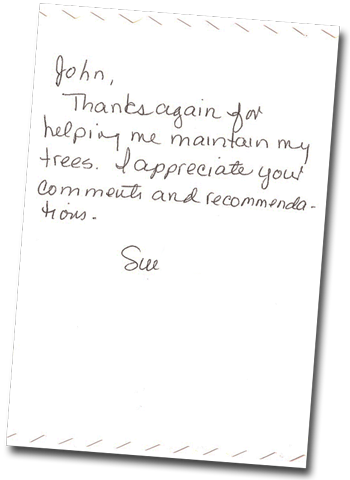 John,
Thanks again for
helping me maintain my
trees. I appreciate your
comments and recommenda-
tions.
Sue